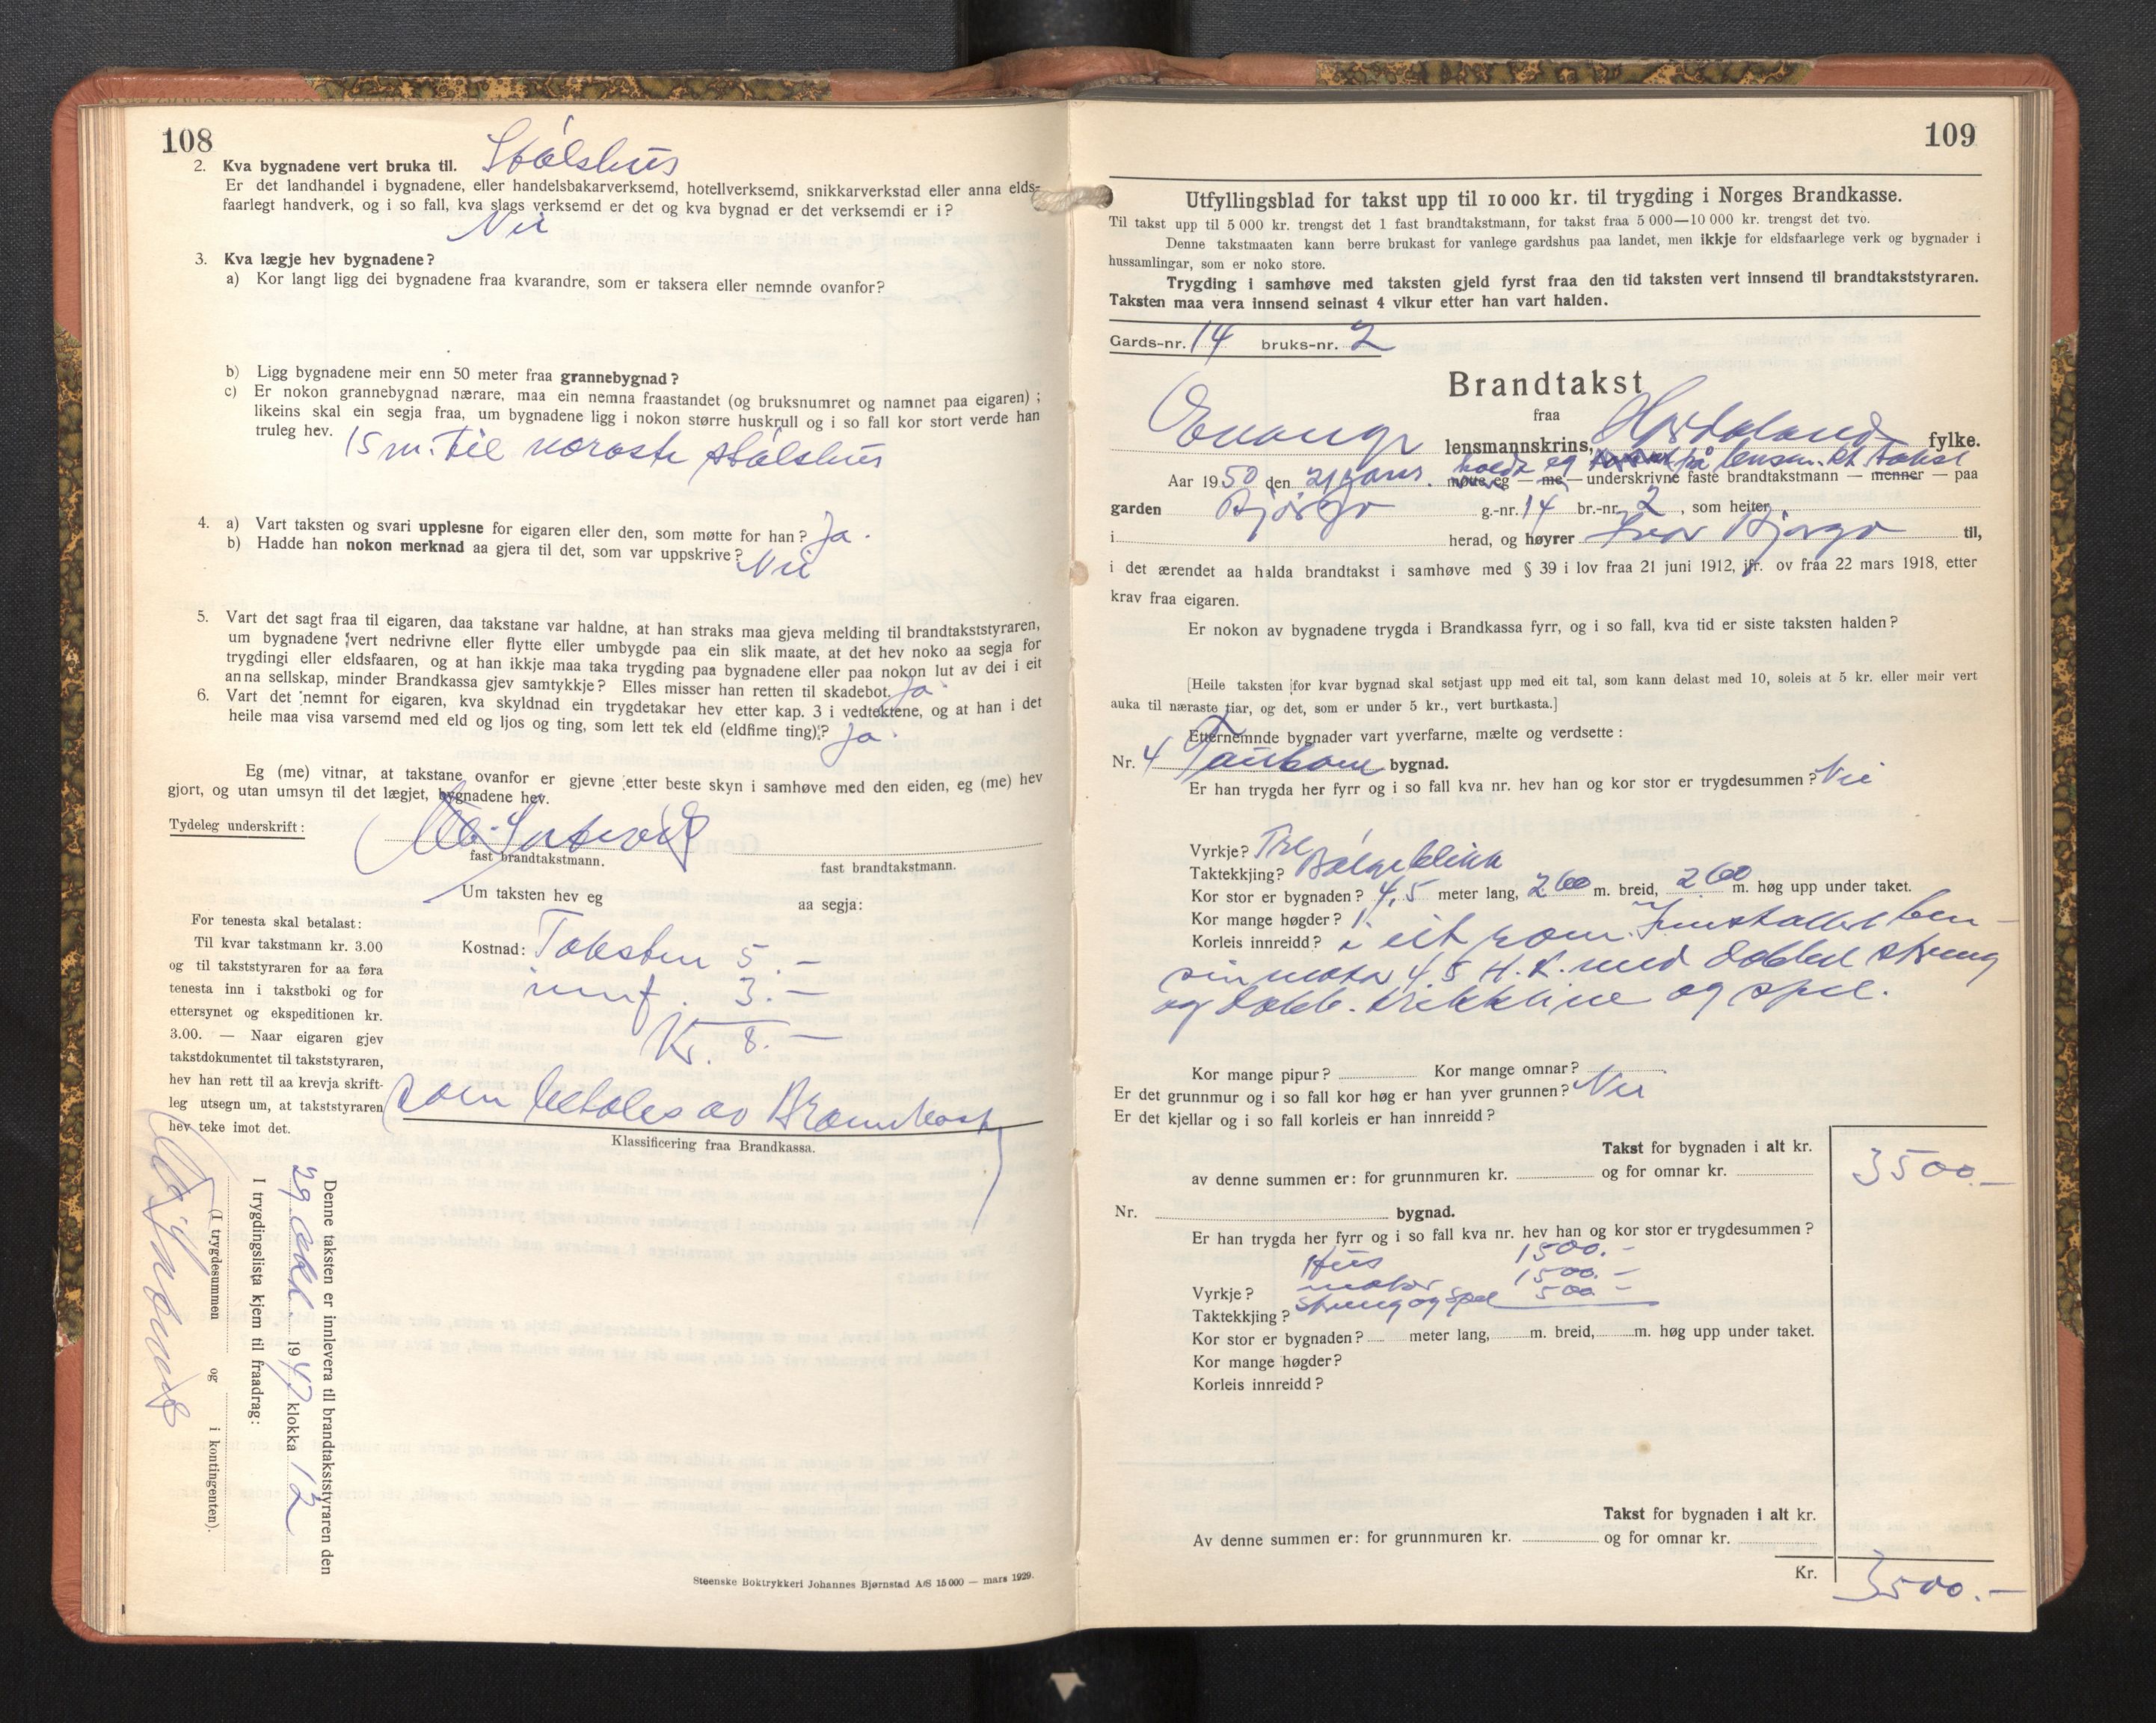 108
2. Kva bygnadene vert bruka til. Stølshus
Er det landhandel i bygnadene, eller handelsbakarverksemd, hotellverksemd, snikkarverkstad eller anna elds-
faarlegt handverk, og i so fall, kva slags verksemd er det og kva bygnad er det verksemdi er i?
Nei
3. Kva lægje hev bygnadene?
a) Kor langt ligg dei bygnadene fraa kvarandre, som er taksera eller nemnde ovanfor?
b) Ligg bygnadene meir enn 50 meter fraa grannebygnad?
c) Er nokon grannebygnad nærare, maa ein nemna fraastandet (og bruksnumret og namnet paa eigaren) ;
likeins skal ein segja fraa, um bygnadene ligg i nokon større huskrull og i so fall kor stort verde han
truleg hev. 15 m. til næraste stølshus
4. a) Vart taksten og svari upplesne for eigaren eller den, som møtte for han? Ja.
b) Hadde han nokon merknad aa gjera til det, som var uppskrive? Nei
5. Vart det sagt fraa til eigaren, daa takstane var haldne, at han straks maa gjeva melding til brandtakststyraren,
um bygnadene vert nedrivne eller flytte eller umbygde paa ein slik maate, at det hev noko aa segja for
trygdingi eller eldsfaaren, og at han ikkje maa taka trygding paa bygnadene eller paa nokon lut av dei i eit
anna sellskap, minder Brandkassa gjev samtykkje? Elles misser han retten til skadebot. Ja.
6. Vart det nemnt for eigaren, kva skyldnad ein trygdetakar hev etter kap. 3 i vedtektene, og at han i det
heile maa visa varsemd med eld og ljos og ting, som lett tek eld (eldfime ting)? Ja.
Eg (me) vitnar, at takstane ovanfor er gjevne etter beste skyn i samhøve med den eiden, eg (me) hev
gjort, og utan umsyn til det lægjet, bygnadene hev.
Tydeleg underskrift:
fast brandtakstmann. fast brandtakstmann.
Um taksten hev eg aa segja:
For tenesta skal betalast:
Til kvar takstmann kr. 3.00
og til takststyraren for aa føra
tenesta inn i takstboki og for
ettersynet og ekspeditionen kr.
3.00. — Naar eigaren gjev
takstdokumentet til takststyraren,
hev han rett til aa krevja skrift-
leg utsegn um, at takststyraren
hev teke imot det.
Kostnad: Taksten 5.—
innf. 3.—
Kr. 8.—
som betales av Brannkassa
Klassificering fraa Brandkassa.
Denne taksten er innlevera til brandtakststyraren den
29 1947 klokka 12
I trygdingslista kjem til fraadrag:
(I trygdesummen og i kontingenten).
Steenske Boktrykkeri Johannes Bjørnstad A/S 15 000 — mars 1929.
109
Utfyllingsblad for takst upp til 10 000 kr. til trygding i Norges Brandkasse.
Til takst upp til 5 000 kr. trengst det 1 fast brandtakstmann, for takst fraa 5 000—10 000 kr. trengst det tvo.
Denne takstmaaten kann berre brukast for vanlege gardshus paa landet, men ikkje for eldsfaarlege verk og bygnader i
hussamlingar, som er noko store.
Trygding i samhøve med taksten gjeld fyrst fraa den tid taksten vert innsend til brandtakststyraren.
Taksten maa vera innsend seinast 4 vikur etter han vart halden.
Gards-nr. 14 bruks-nr. 2
Brandtakst
fraa
Evanger lensmannskrins, Hordaland fylke.
holdt eg på lensm. kt. takst
Aar 1950 den 21 jans. møtte eg — me — underskrivne faste brandtakstmann — menner — paa
garden Bjørgo g.-nr. 14 br.-nr. 2, som heiter
i herad, og høyrer Ivar Bjørgo til,
i det ærendet aa halda brandtakst i samhøve med § 39 i lov fraa 21 juni 1912, jfr. ov fraa 22 mars 1918, etter
krav fraa eigaren.
Er nokon av bygnadene trygda i Brandkassa fyrr, og i so fall, kva tid er siste taksten halden?
[Heile taksten for kvar bygnad skal setjast upp med eit tal, som kann delast med 10, soleis at 5 kr. eller meir vert
auka til næraste tiar, og det, som er under 5 kr., vert burtkasta.]
Etternemnde bygnader vart yverfarne, mælte og verdsette :
Nr. 4 Taubane bygnad.
Er han trygda her fyrr og i so fall kva nr. hev han og kor stor er trygdesummen? Nei
Vyrkje? Tre
Taktekkjing? Bølgeblikk
Kor stor er bygnaden? 4,5 meter lang, 260 m. breid, 260 m. høg upp under taket.
Kor mange høgder? 1
Korleis innreidd? i eit rom. Innstallert ben-
sinmotor 4.5 H.K. med dobbel streng
og dobb. trekkline og spel.
Kor mange pipur? Kor mange omnar?
Er det grunnmur og i so fall kor høg er han yver grunnen? Nei
Er det kjellar og i so fall korleis er han innreidd?
Takst for bygnaden i alt kr.
av denne summen er: for grunnmuren kr. og for omnar kr. 3500.—
Nr. bygnad.
Er han trygda her fyrr og i so fall kva nr. hev han og kor stor er trygdesummen?
Hus 1500.—
Vyrkje? motor 1500.—
Taktekkjing? streng og spel 500
Kor stor er bygnaden? meter lang, m. breid, m. høg upp under taket.
Kor mange høgder?
Korleis innreidd?
Takst for bygnaden i alt kr.
Av denne summen er: for grunnmuren kr. og for omnar kr.
Kr. 3500.—